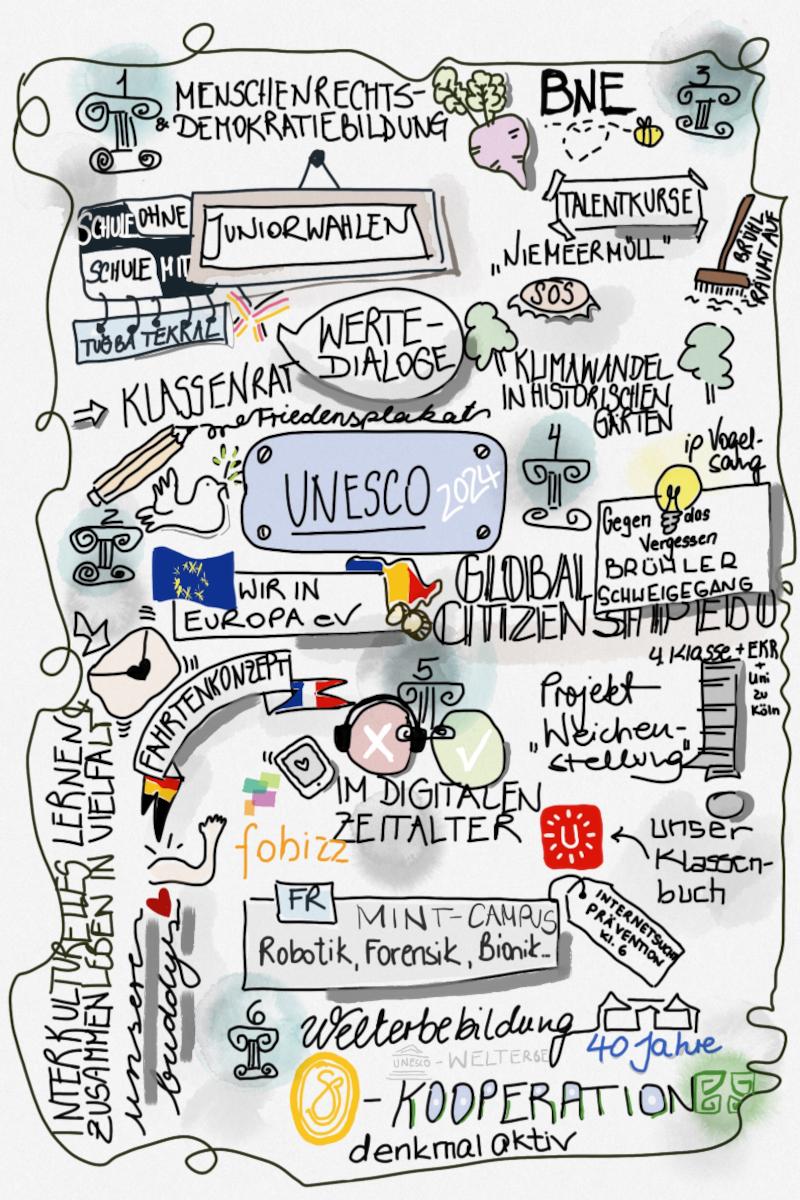 1
MENSCHENRECHTS-
& DEMOKRATIEBILDUNG
BNE
3
SCHULE OHNE
SCHULE MIT
JUNIORWAHLEN
TALENTKURSE
„NIEMEERMÜLL"
BRÜHL
RÄUMT AUF
SOS
TUĞBA TEKKAL
WERTE-
DIALOGE
KLIMAWANDEL
IN HISTORISCHEN
GÄRTEN
KLASSENRAT
Friedensplakat
UNESCO 2024
4
ip Vogel-
sang
Gegen das
Vergessen
BRÜHLER
SCHWEIGEGANG
2
WIR IN
EUROPA eV
GLOBAL
CITIZENSHIP EDU
FAHRTENKONZEPT
5
4. Klasse + EKR
+
Uni
zu
Köln
Projekt
„Weichen-
stellung"
IM DIGITALEN
ZEITALTER
fobizz
U
unser
Klassen-
buch
INTERKULTURELLES LERNEN &
ZUSAMMENLEBEN IN VIELFALT
unsere
buddys
FR
MINT-CAMPUS
Robotik, Forensik, Bionik..
INTERNETSUCHT
PRÄVENTION
Kl. 6
6
Welterbebildung
40 Jahre
UNESCO - WELTERBE
S - KOOPERATION
denkmal aktiv